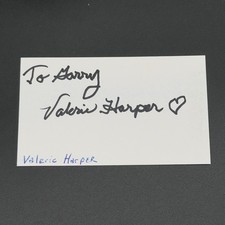 To Garry
Valerie Harper ♡
Valerie Harper